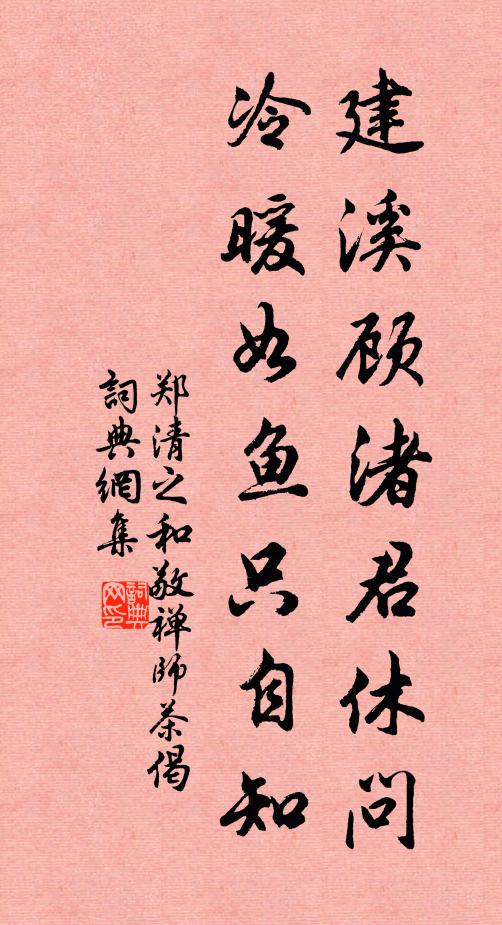 建溪顾渚君休问
冷暖如鱼只自知
郑清之和敬禅师茶偈
詞典網集
詞典
网印